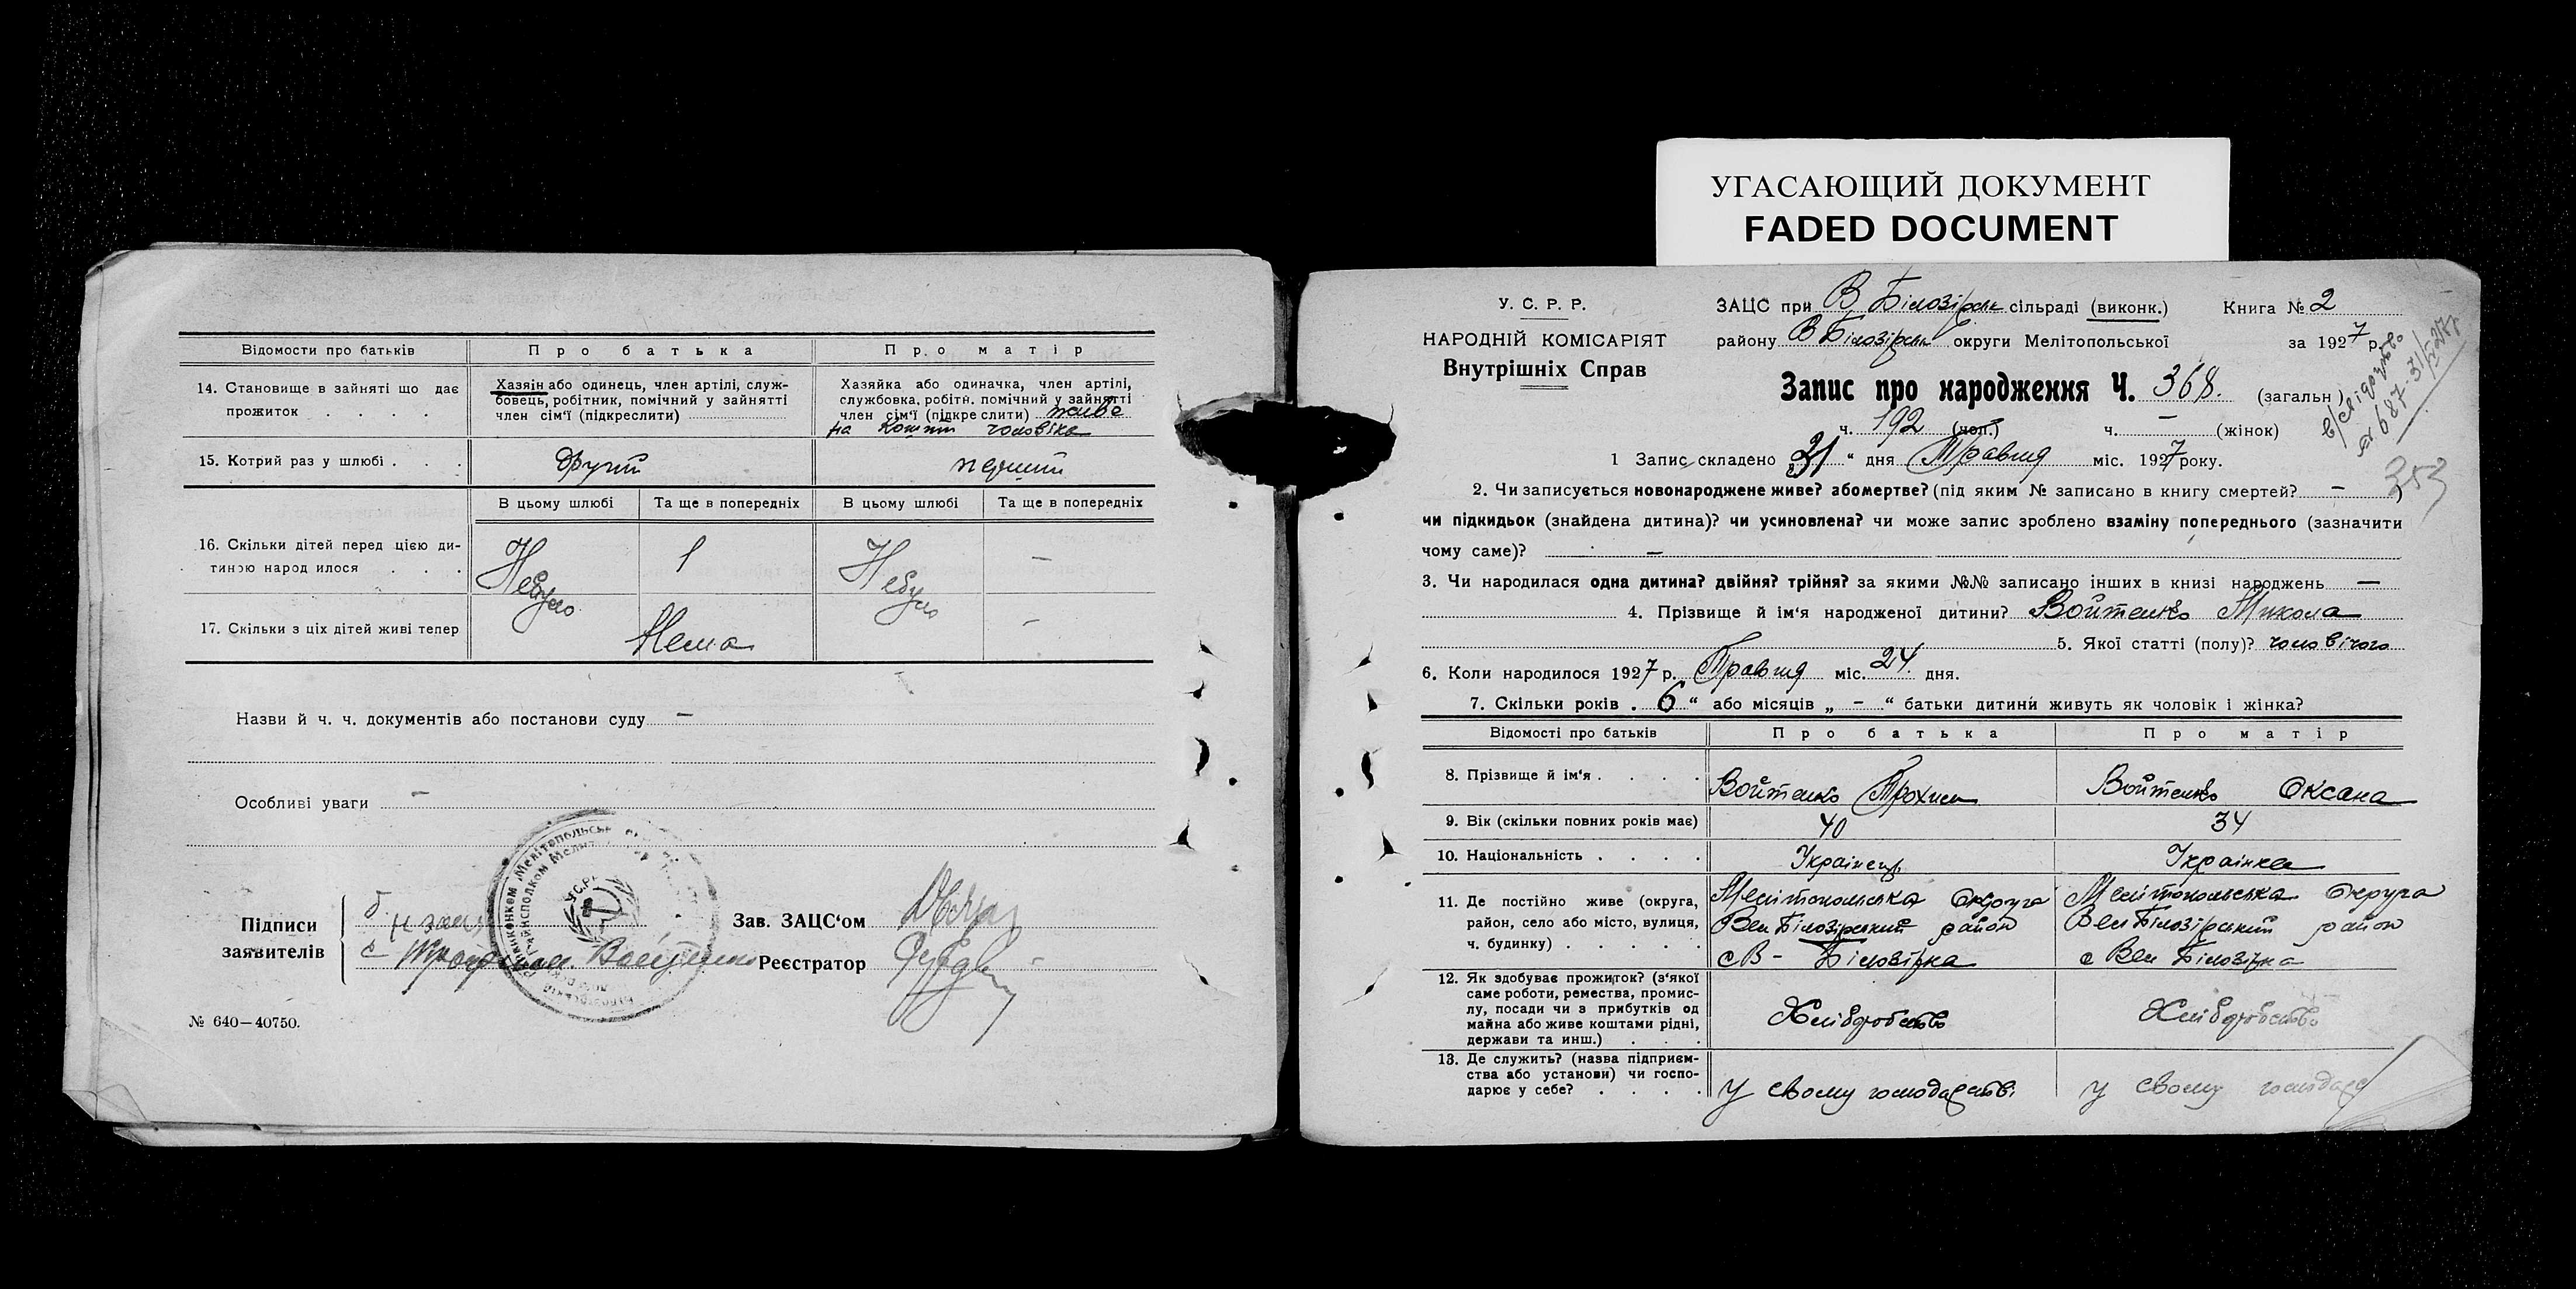 УГАСАЮЩИЙ ДОКУМЕНТ
FADED DOCUMENT
Відомости про батьків Про батька Про матір
14. Становище в зайняті що дає прожиток . . . .
Хазяін або одинець, член артілі, служ-
бовець, робітник, помічний у зайнятті
член сім'ї (підкреслити)
Хазяйка або одиначка, член артілі,
службовка, робітн. помічний у зайнятті
член сім'ї (підкре слити) живе
на кошти чоловіка
15. Котрий раз у шлюбі . . . другий перший
В цьому шлюбі Та ще в попередніх В цьому шлюбі Та ще в попередніх
16. Скільки дітей перед цією ди-
тиною народ илося . . . Небуло 1 Небуло —
17. Скільки з ціх дітей живі тепер Нема —
Назви й ч. ч. документів або постанови суду —
Особливі уваги —
Підписи
заявителів
Зав. ЗАЦС'ом
Реєстратор
№ 640—40750.
У. С. Р. Р.
НАРОДНІЙ КОМІСАРІЯТ
Внутрішніх Справ
ЗАЦС при В Білозірськ сільраді (виконк.) Книга № 2
району В Білозірськ округи Мелітопольської за 1927 р.
Запис про народження Ч. 368. (загальн.)
ч. 192 (чол.) ч. — (жінок)
353
1 Запис складено „31“ дня Травня міс. 1927 року.
2. Чи записується новонароджене живе? абомертве? (під яким № записано в книгу смертей? — )
чи підкидьок (знайдена дитина)? чи усиновлена? чи може запис зроблено взаміну попереднього (зазначити
чому саме)? —
3. Чи народилася одна дитина? двійня? трійня? за якими №№ записано інших в книзі народжень —
4. Прізвище й ім'я народженої дитини? Войтенко Микола
5. Якої статті (полу)? чоловічого
6. Коли народилося 1927 р. Травня міс. 24. дня.
7. Скільки років . 6 “ або місяців „ - “ батьки дитини живуть як чоловік і жінка?
Відомості про батьків Про батька Про матір
8. Прізвище й ім'я . . . . Войтенко Трохим Войтенко Оксана
9. Вік (скільки повних років має) 40 34
10. Національність . . . . Українець Українка
11. Де постійно живе (округа,
район, село або місто, вулиця,
ч. будинку) . . . . .
Мелітопольська Округа
Вел Білозірський район
с В - Білозірка
Мелітопольська Округа
Вел Білозірський район
с Вел Білозірка
12. Як здобуває прожиток? (з'якої
саме роботи, ремества, промис-
лу, посади чи з прибутків од
майна або живе коштами рідні,
держави та инш.) . . .
Хліборобство Хліборобство
13. Де служить? (назва підприєм-
ства або установи) чи госпо-
дарює у себе? . . . .
У свому господарстві. у свому